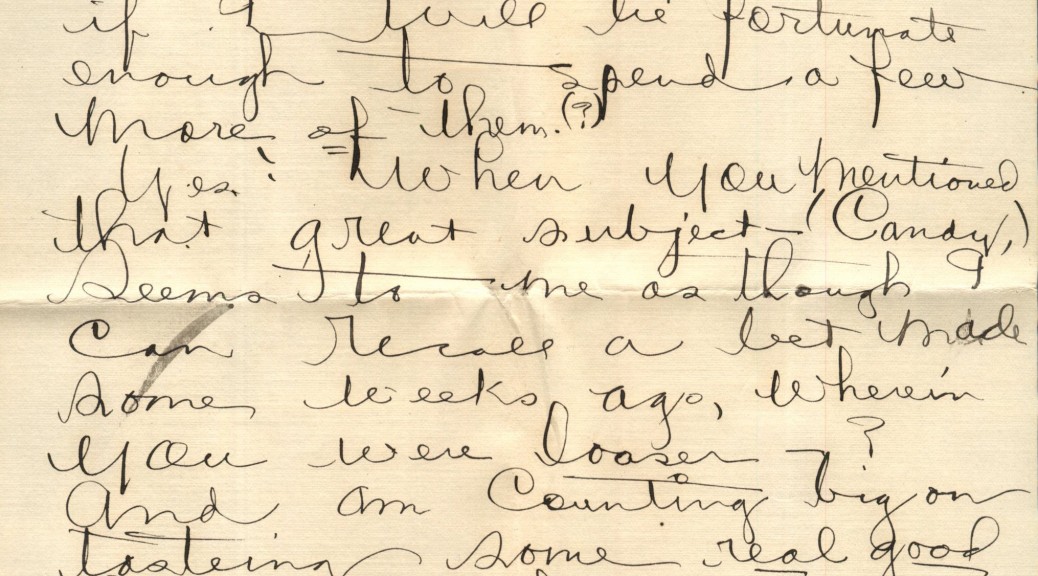 if I will be fortunate
enough to spend a few
more of them.(?)
Yes. When you mentioned
that great subject-(Candy,)
seems to me as though I
can recall a bet made
some weeks ago, wherein
you were looser - ?
And am counting big on
tasteing some real good